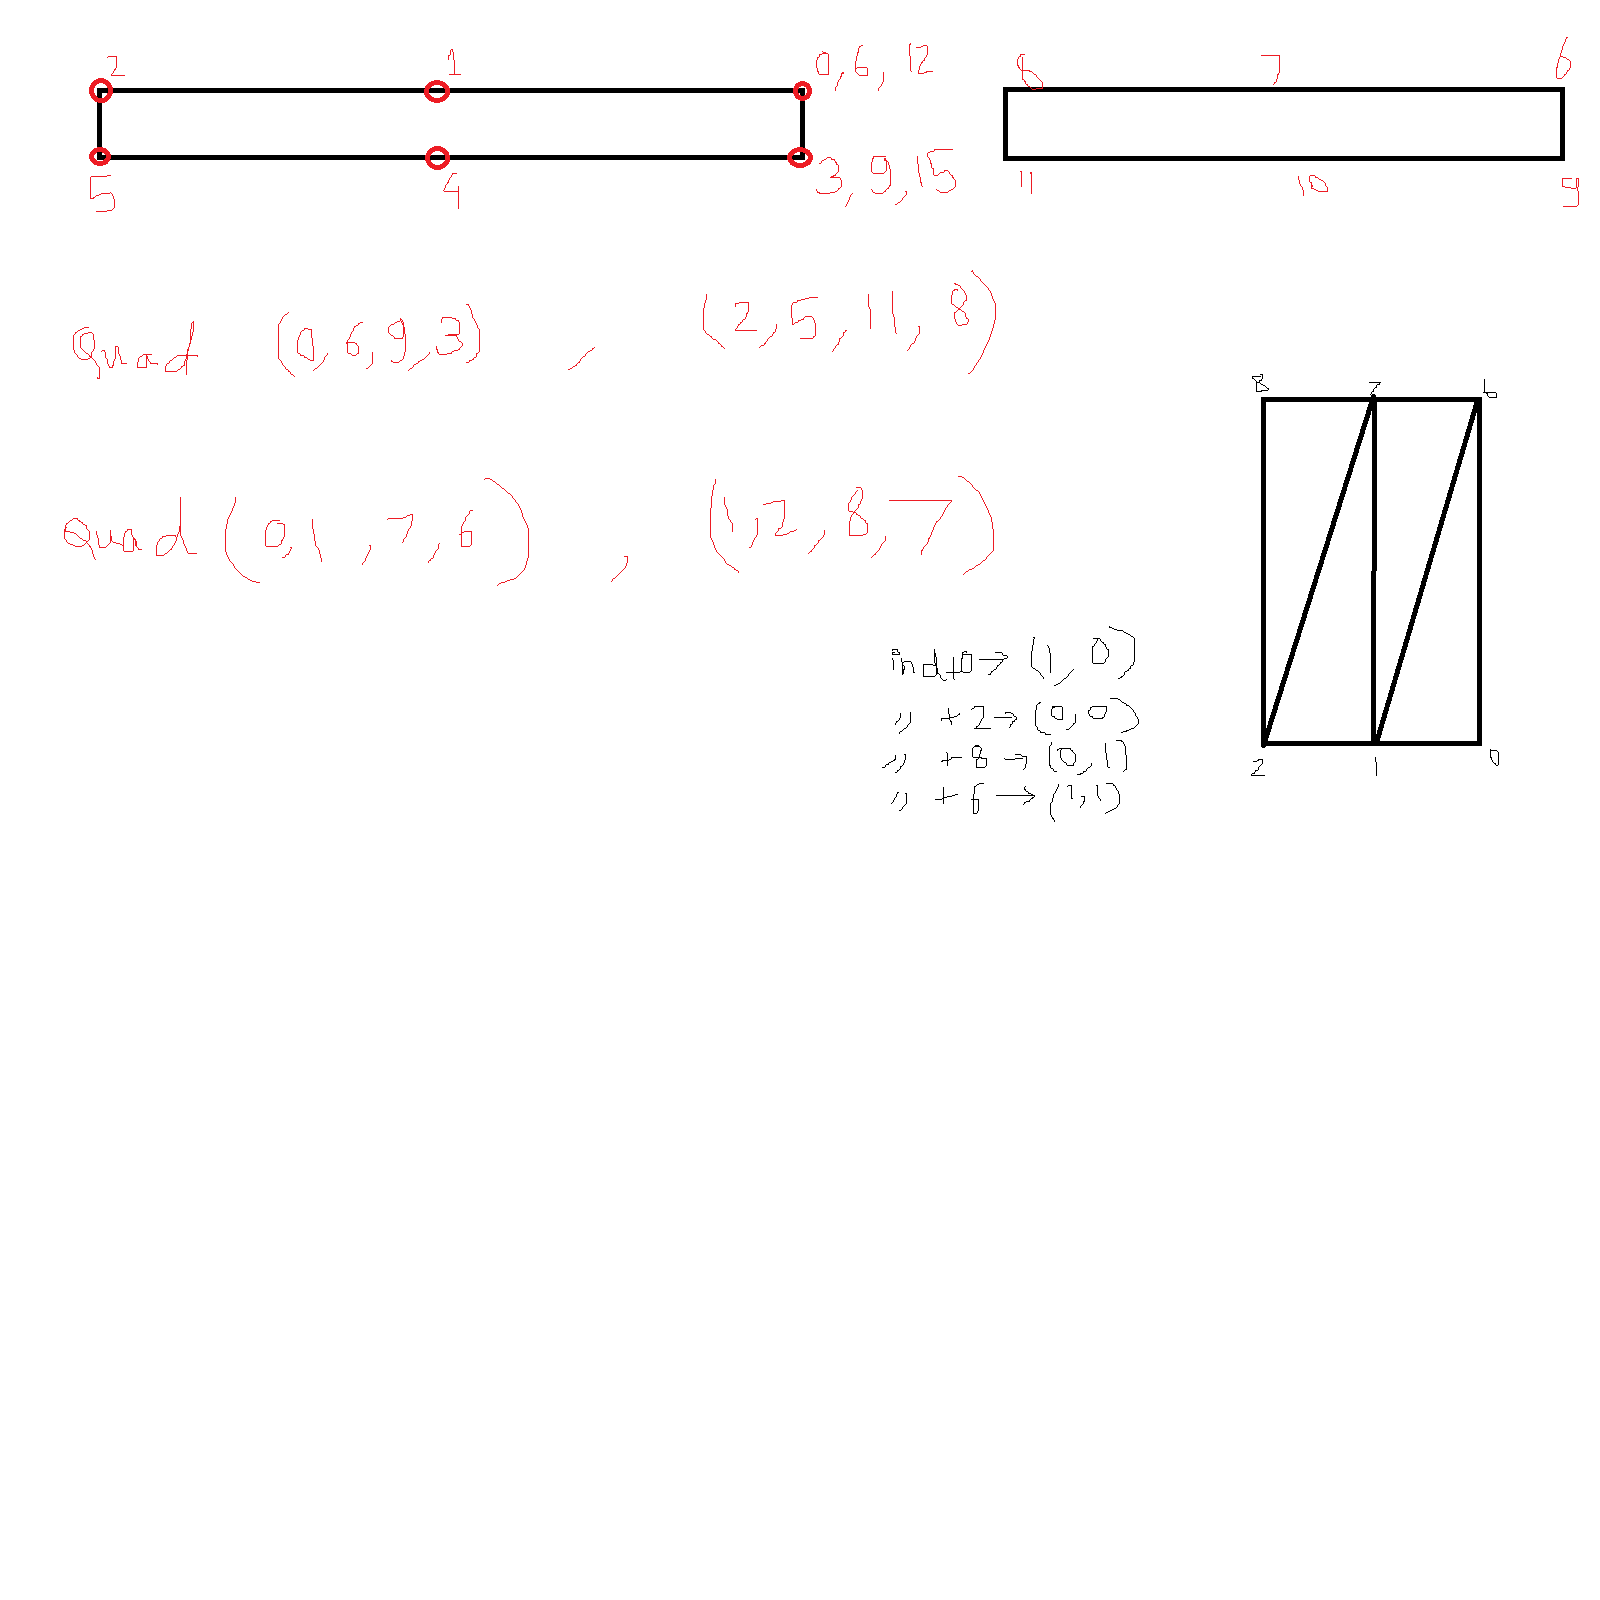 2 1 0, 6, 12
5 4 3, 9, 15
8 7 6
11 10 9
Quad (0, 6, 9, 3) , (2, 5, 11, 8)
Quad (0, 1, 7, 6) , (1, 2, 8, 7)
8 7 6
2 1 0
ind+0→ (1, 0)
" +2→ (0, 0)
" +8 → (0, 1)
" +6 → (1, 1)